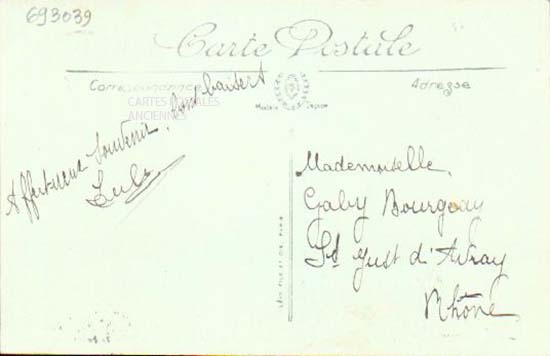 693039
Carte Postale
Correspondance
Adresse
CARTES POSTALES
ANCIENNES
Affectueux Souvenir, bons baisers
Mademoiselle
Gaby Bourgeay
St Just d'Avray
Rhône